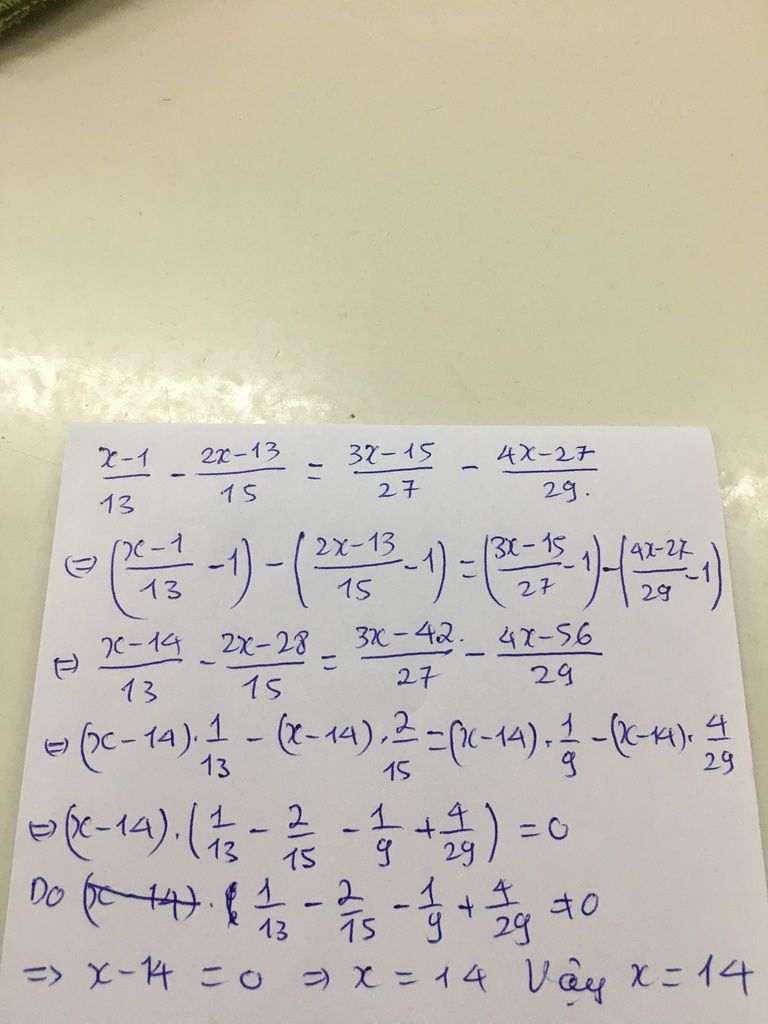 x-1/13 - 2x-13/15 = 3x-15/27 - 4x-27/29.
⇔ (x-1/13 - 1) - (2x-13/15 - 1) = (3x-15/27 - 1) - (4x-27/29 - 1)
⇔ x-14/13 - 2x-28/15 = 3x-42/27 - 4x-56/29
⇔ (x-14).1/13 - (x-14).2/15 = (x-14).1/9 - (x-14).4/29
⇔ (x-14).(1/13 - 2/15 - 1/9 + 4/29) = 0
Do 1/13 - 2/15 - 1/9 + 4/29 ≠ 0
=> x-14 = 0 => x = 14 Vậy x = 14